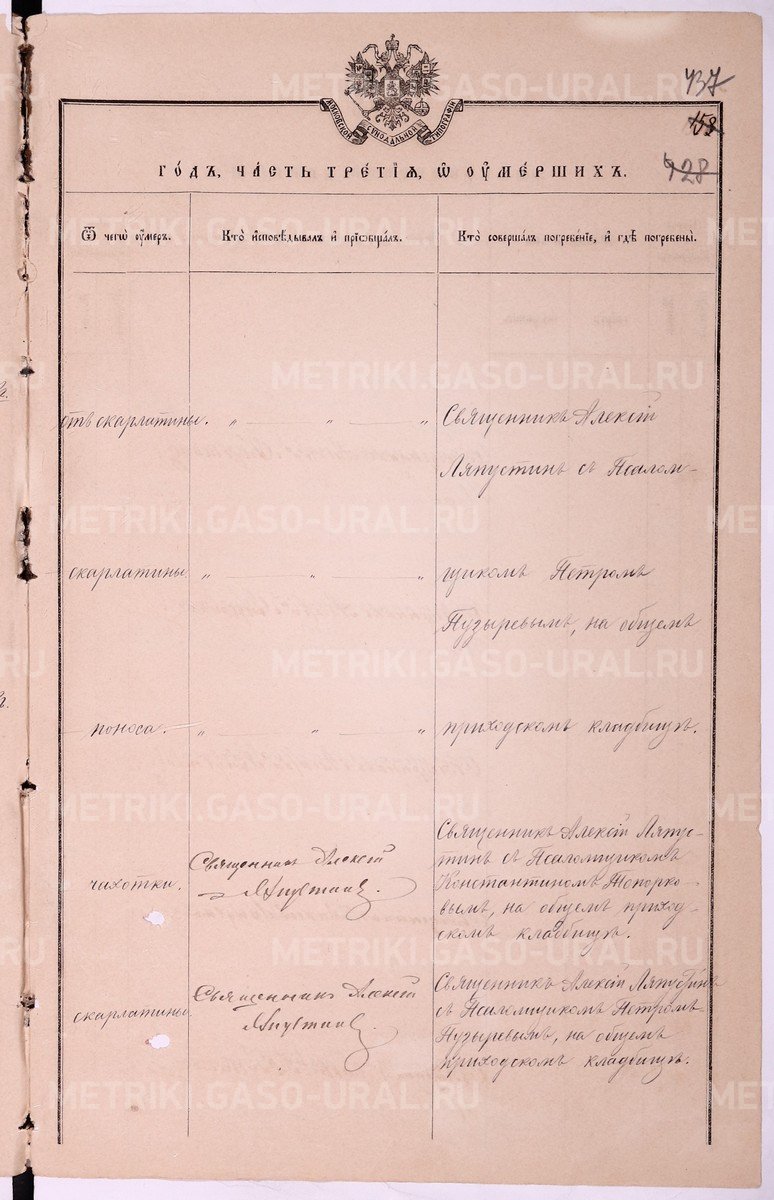 437
158
428
МОСКОВСКОЙ СѴНОДАЛЬНОЙ ТИПОГРАФІИ
ГО́ДЪ, ЧА́СТЬ ТРЕ́ТІѦ, Ѡ҆ ОУ҆МЕ́РШИХЪ.
Ѿ чегѡ̀ оу҆́меръ.
Кто̀ и҆сповѣ́дывалъ и҆ прїѡбща́лъ.
Кто̀ соверша́лъ погребе́нїе, и҆ гдѣ̀ погребены̀.
отъ скарлатины. „ — „ — „ Священникъ Алексій
Ляпустинъ съ Псалом-
скарлатины „ — „ — „ щикомъ Петромъ
Пузыревымъ, на общемъ
поноса. „ — „ — „ приходскомъ кладбищѣ.
чахотки.
Священникъ Алексій
Ляпустинъ.
Священникъ Алексій Ляпус-
тинъ съ Псаломщикомъ
Константиномъ Топорко-
вымъ, на общемъ приход-
скомъ кладбищѣ.
скарлатины
Священникъ Алексій
Ляпустинъ.
Священникъ Алексій Ляпустинъ
съ Псаломщикомъ Петромъ
Пузыревымъ, на общемъ
приходскомъ кладбищѣ.
METRIKI.GASO-URAL.RU